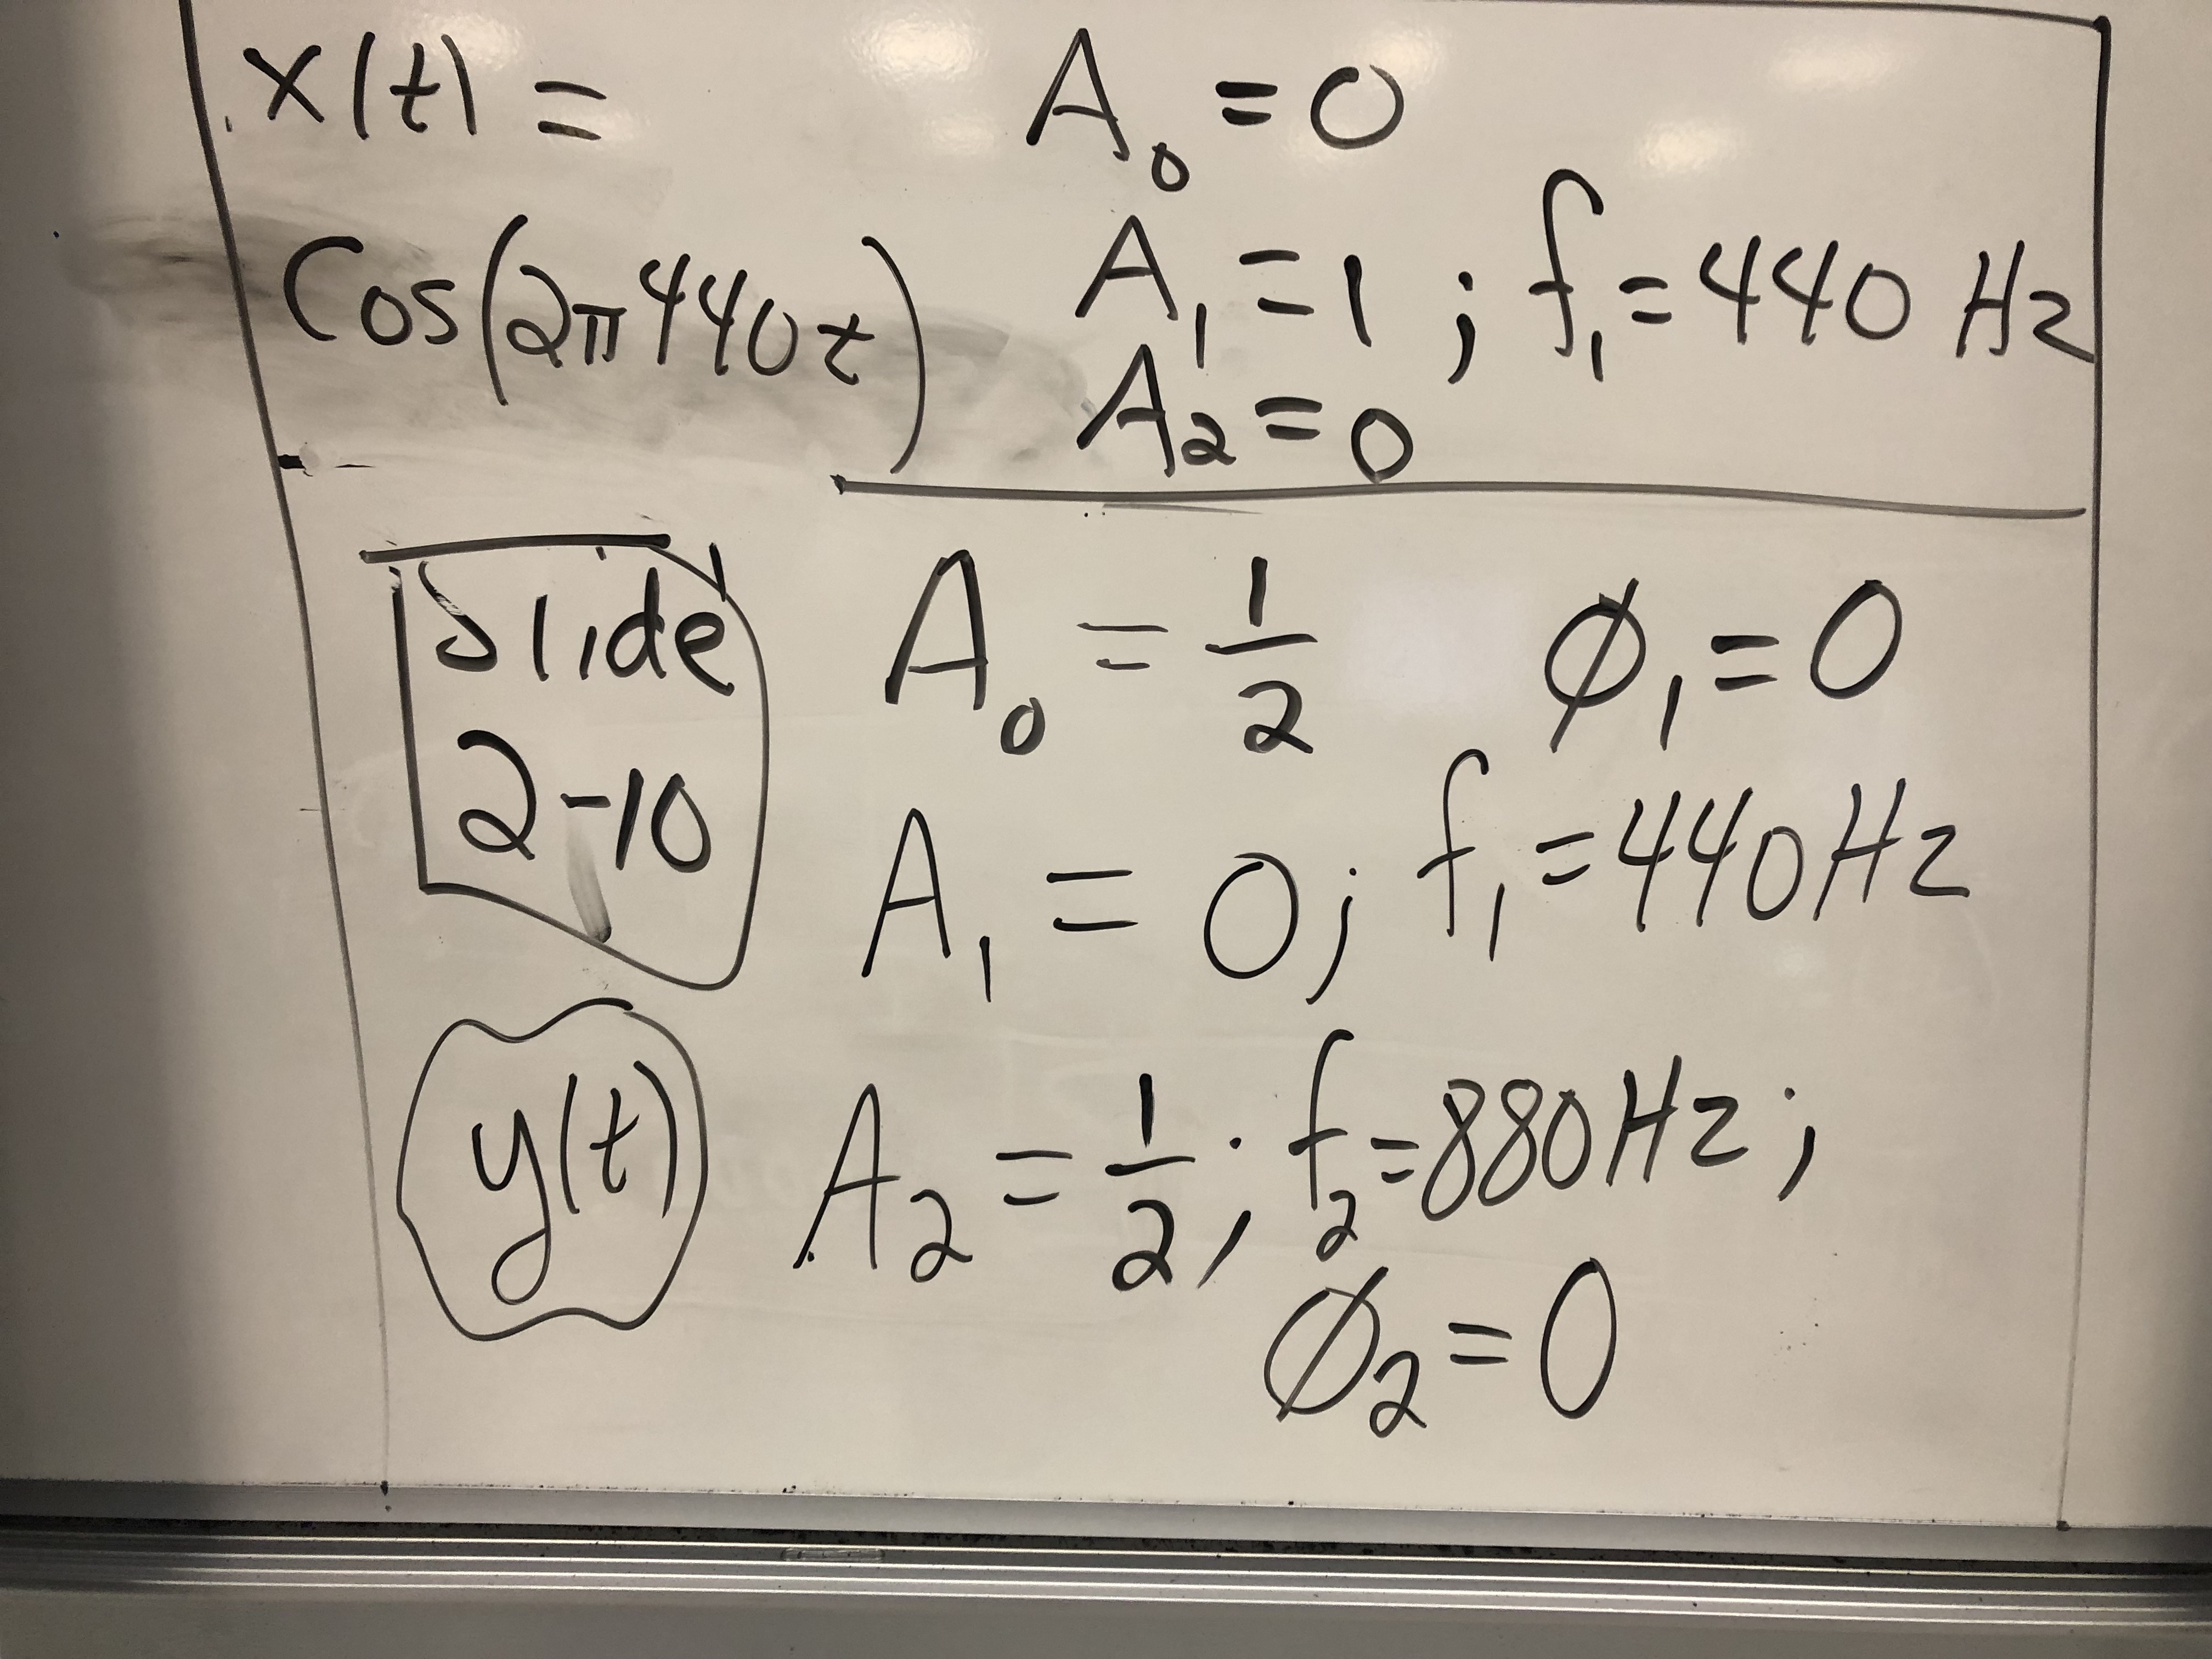 x(t) =
Cos(2π440t)
A₀ = 0
A₁ = 1 ; f₁ = 440 Hz
A₂ = 0
Slide
2-10
y(t)
A₀ = 1/2 ϕ₁ = 0
A₁ = 0; f₁ = 440 Hz
A₂ = 1/2; f₂ = 880 Hz;
ϕ₂ = 0